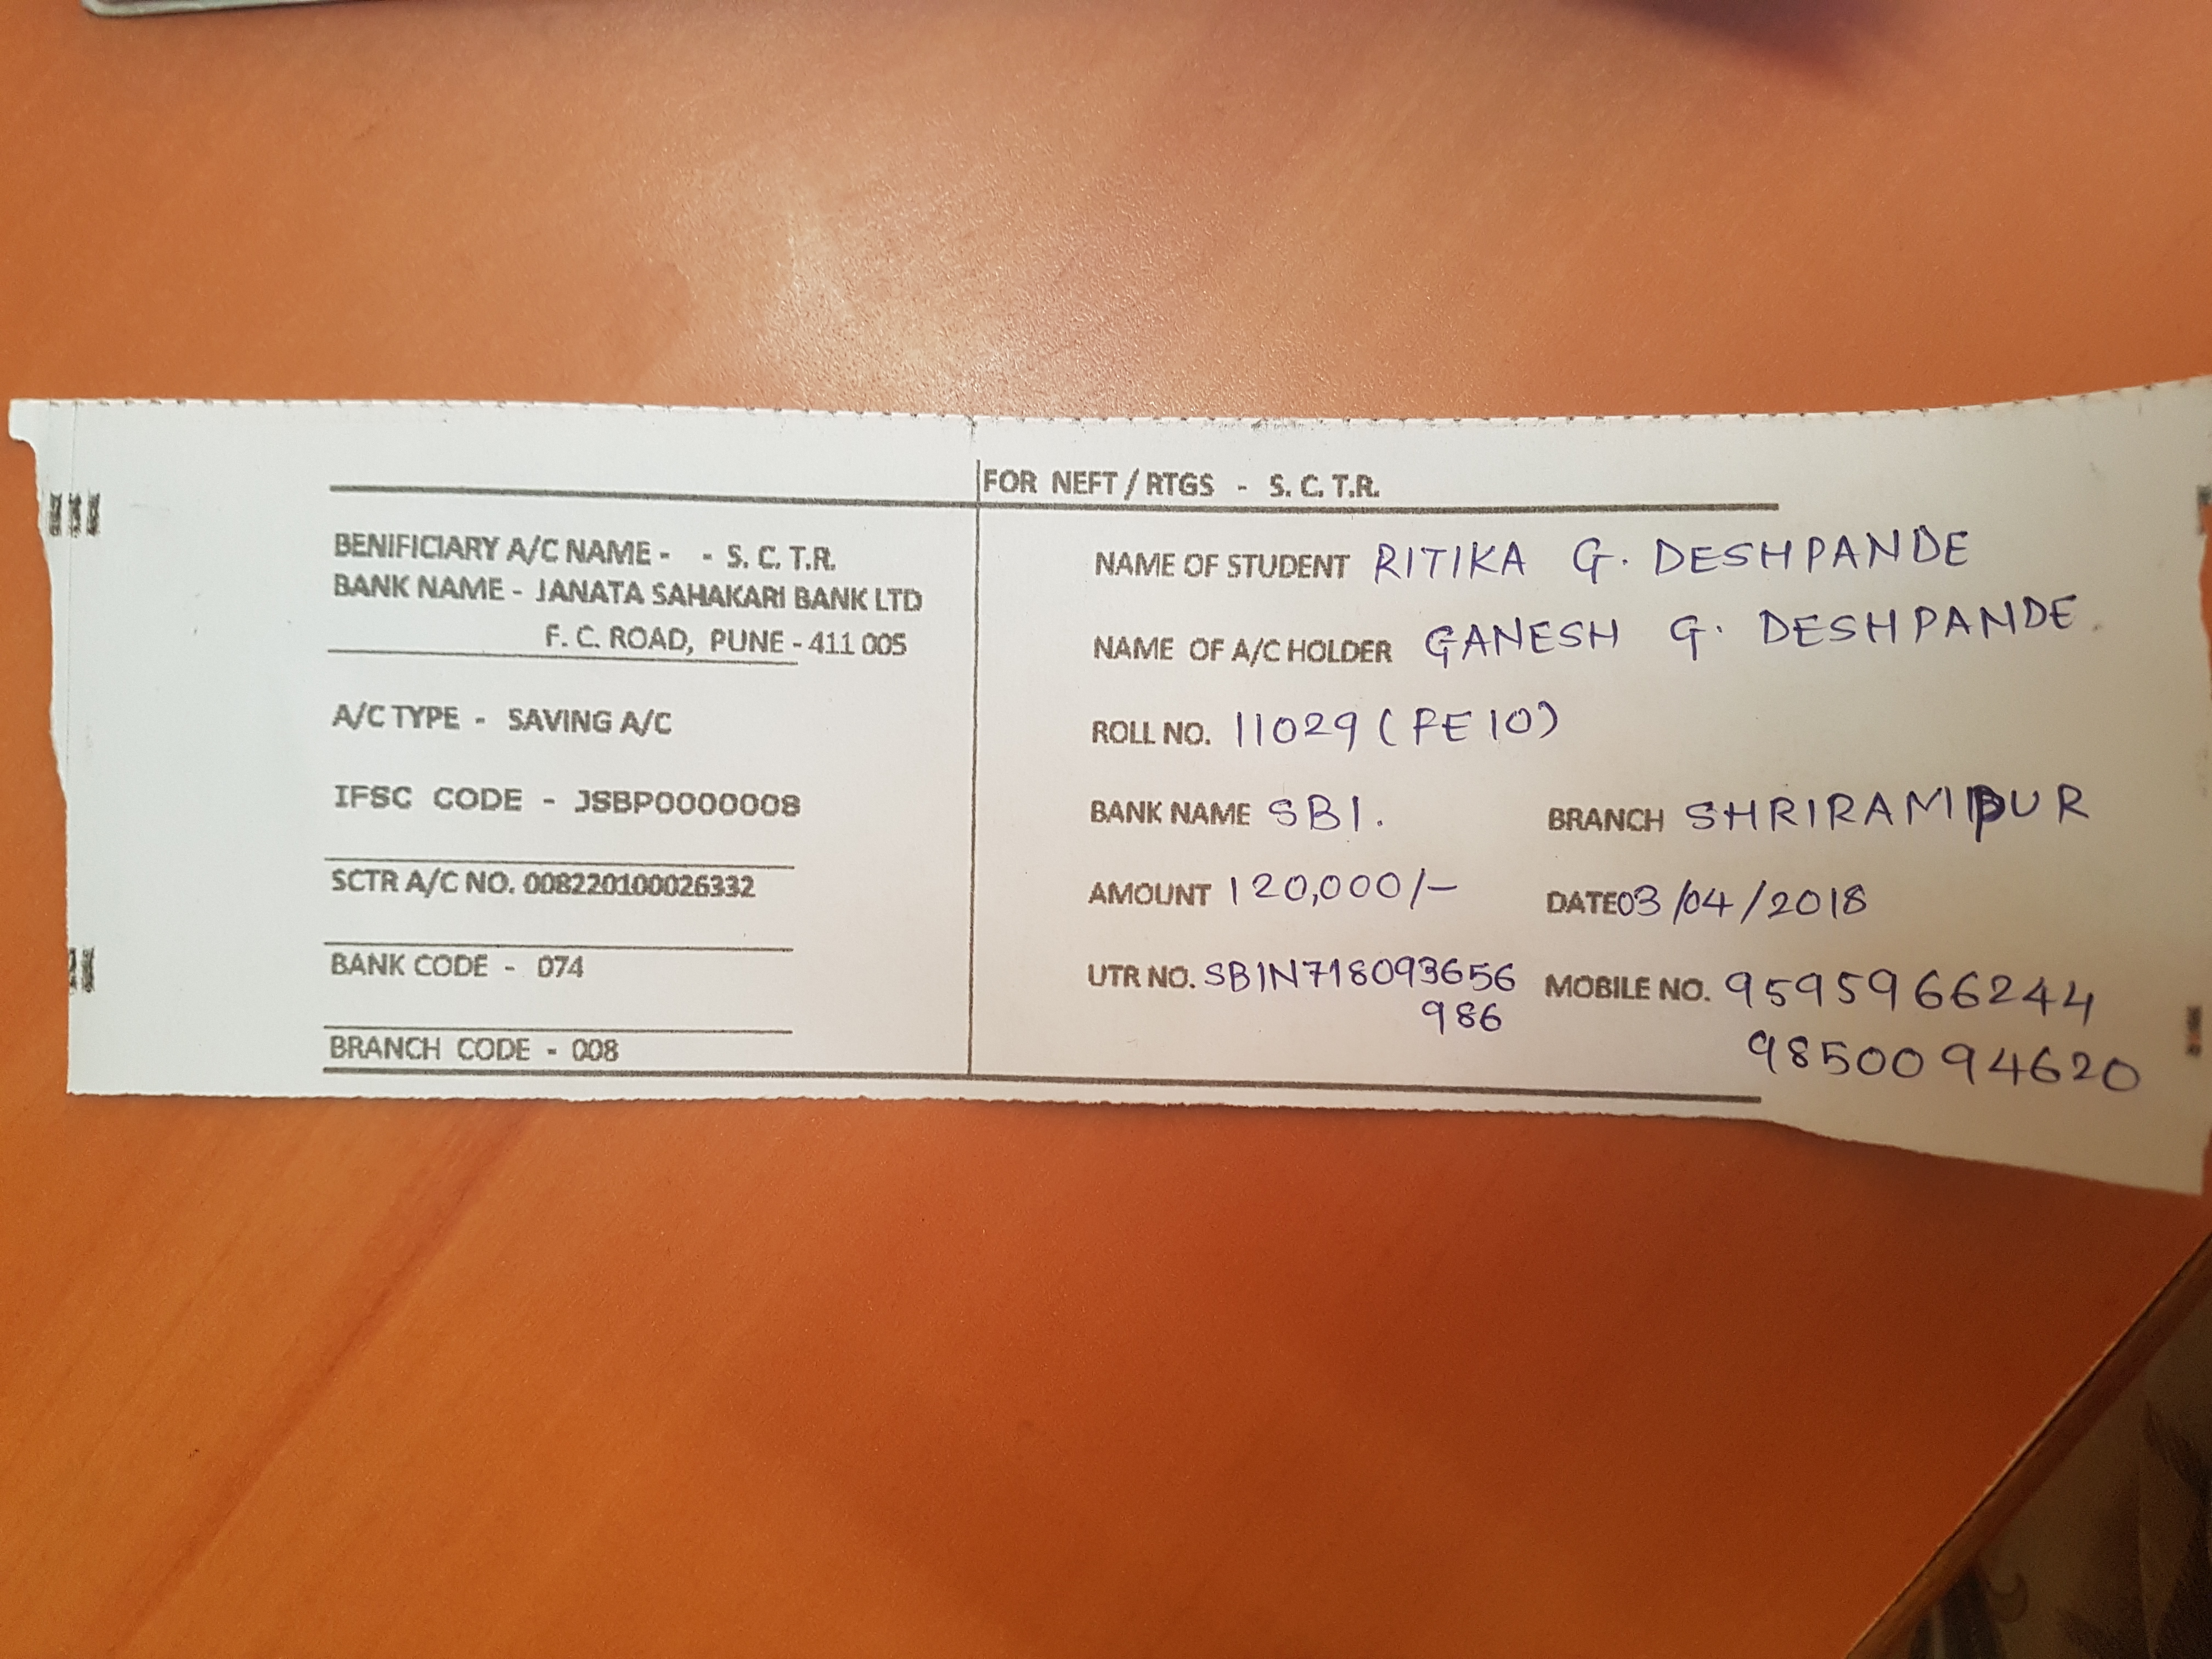 FOR NEFT / RTGS - S. C. T.R.
BENIFICIARY A/C NAME - - S. C. T.R.
BANK NAME - JANATA SAHAKARI BANK LTD
F. C. ROAD, PUNE - 411 005
A/C TYPE - SAVING A/C
IFSC CODE - JSBP0000008
SCTR A/C NO. 008220100026332
BANK CODE - 074
BRANCH CODE - 008
NAME OF STUDENT RITIKA G. DESHPANDE
NAME OF A/C HOLDER GANESH G. DESHPANDE.
ROLL NO. 11029 (FE10)
BANK NAME SBI. BRANCH SHRIRAMPUR
AMOUNT 120,000/- DATE 03/04/2018
UTR NO. SBIN718093656 MOBILE NO. 9595966244
986 9850094620